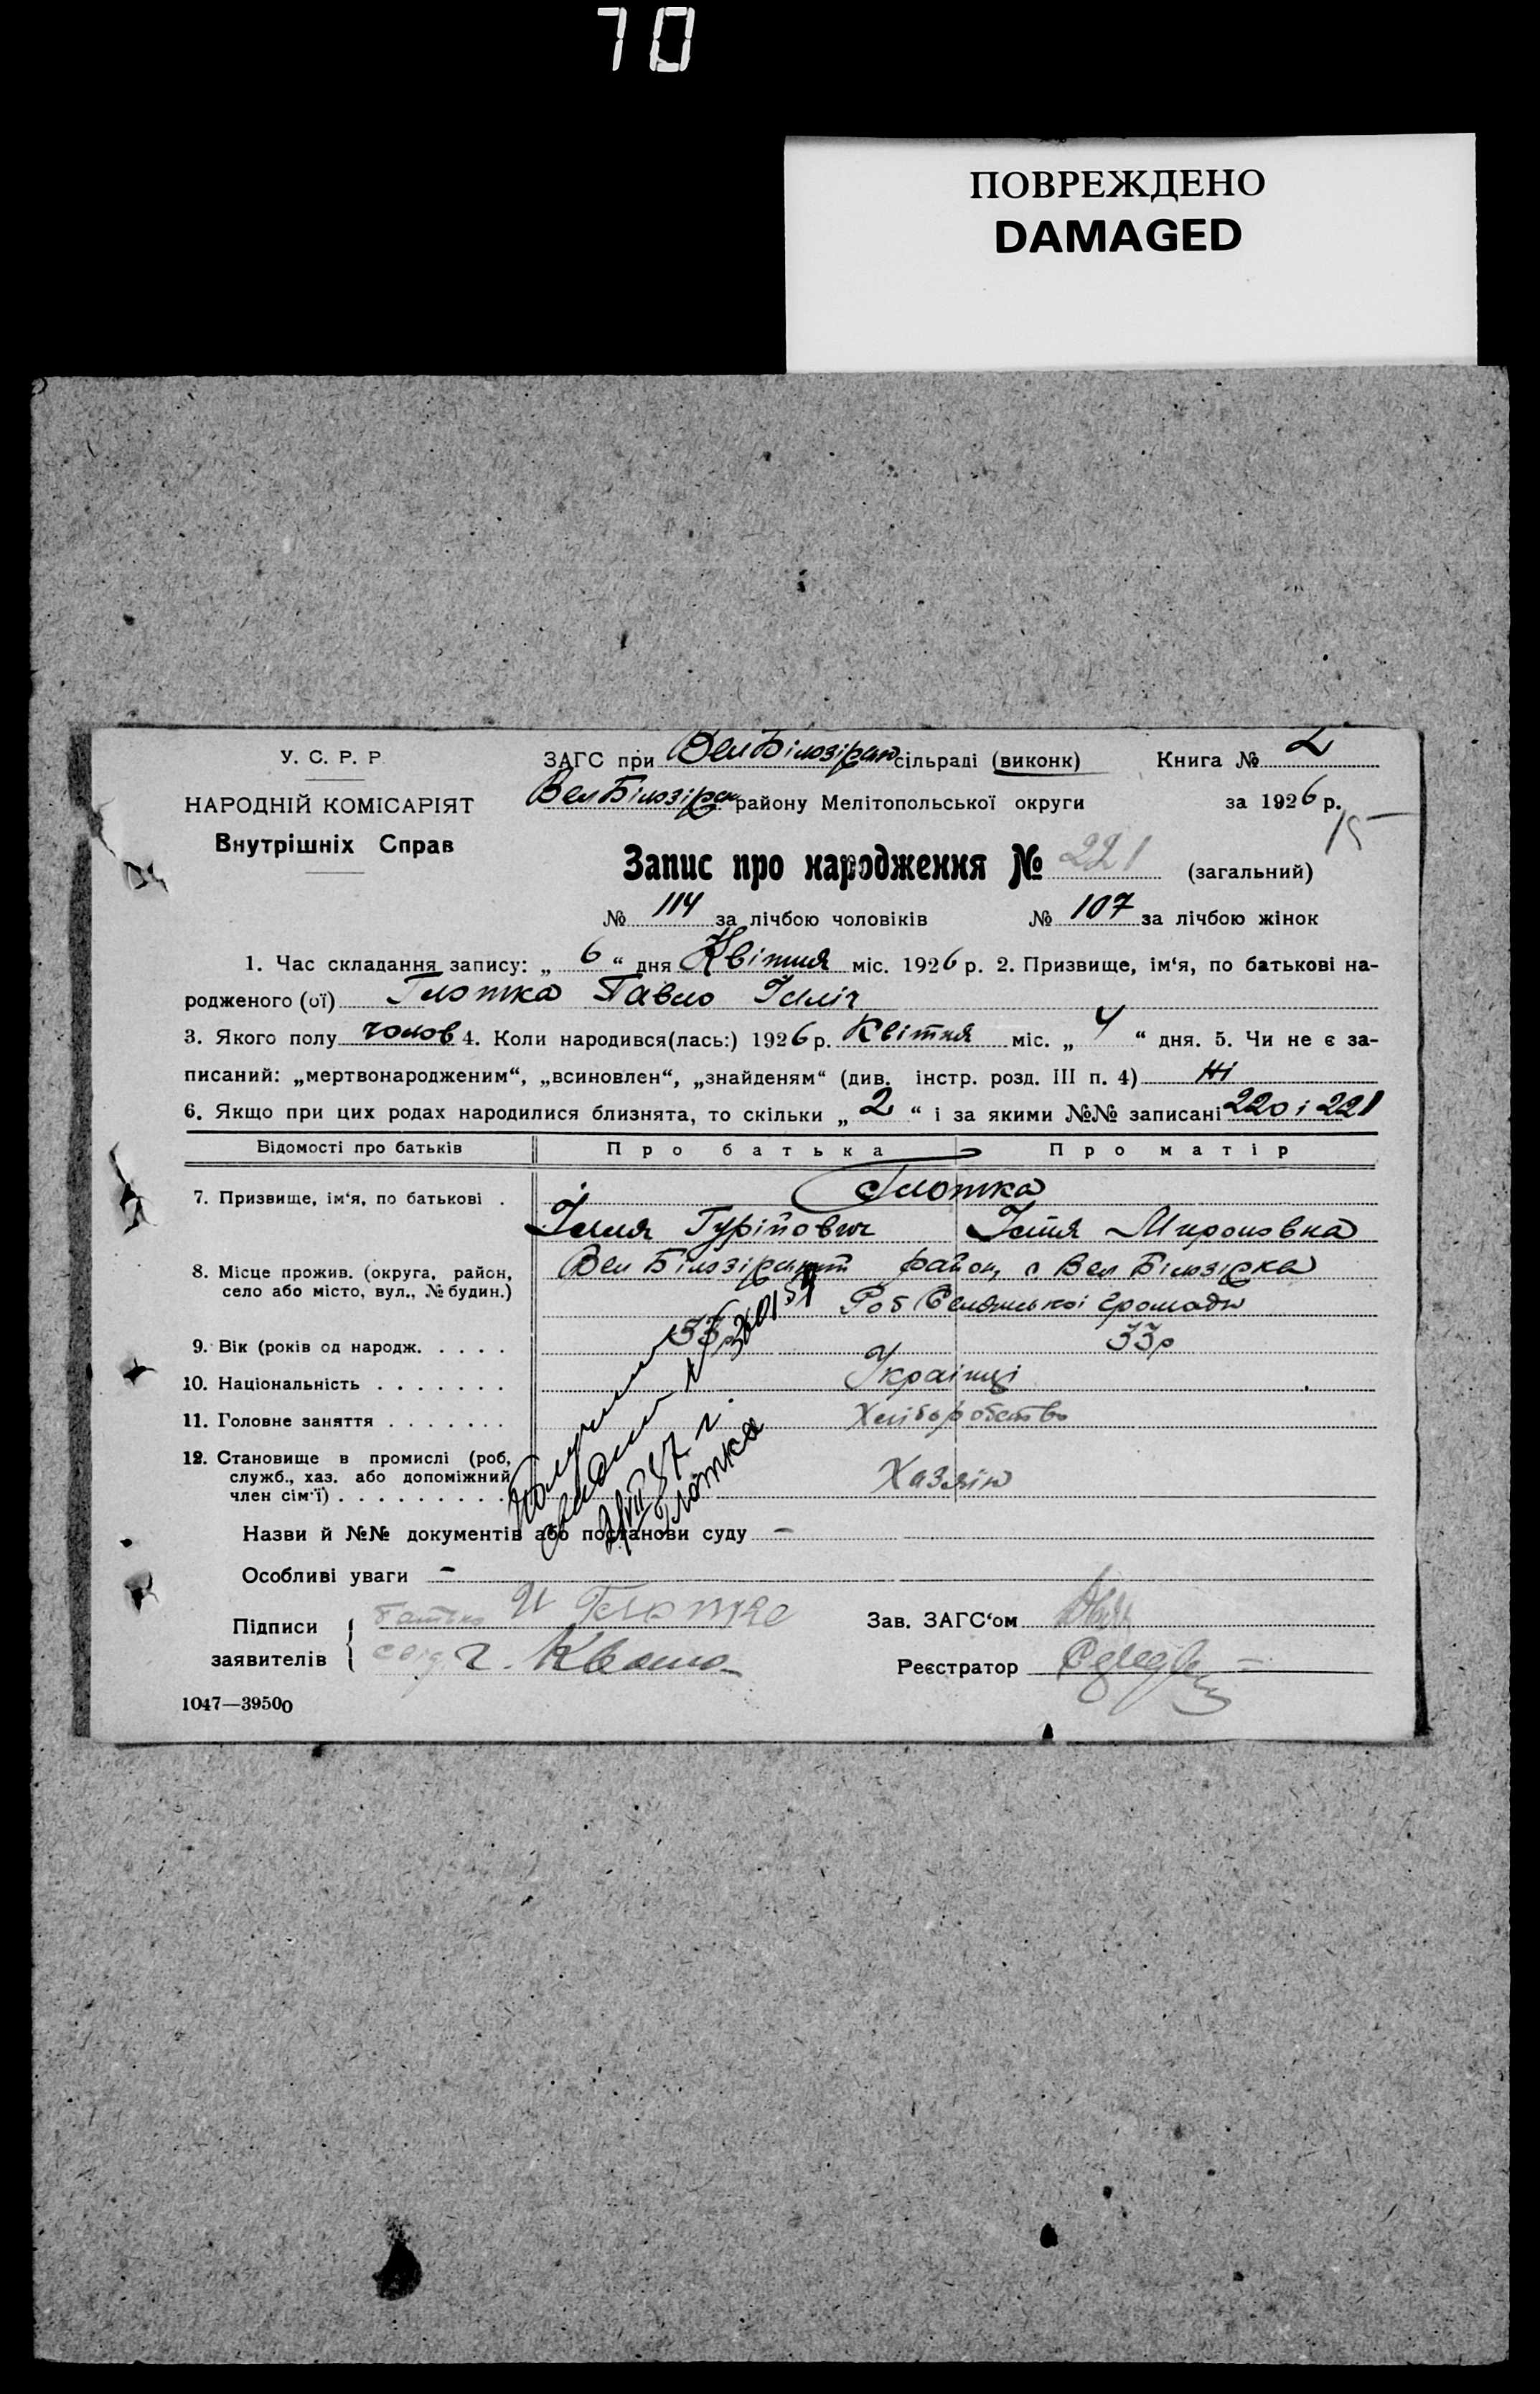 70
ПОВРЕЖДЕНО
DAMAGED
У. С. Р. Р
ЗАГС при Вел Білозірськ сільраді (виконк) Книга № 2
НАРОДНІЙ КОМІСАРІЯТ
Вел Білозірськ району Мелітопольської округи за 1926 р.
15
Внутрішніх Справ
Запис про народження № 221 (загальний)
№ 114 за лічбою чоловіків № 107 за лічбою жінок
1. Час складання запису: „ 6 “ дня Квітня міс. 1926 р. 2. Призвище, ім‘я, по батькові на-
родженого (ої) Глотка Павло Ілліч
3. Якого полу чолов 4. Коли народився(лась:) 1926 р. Квітня міс. „ 4 “ дня. 5. Чи не є за-
писаний: „мертвонародженим“, „всиновлен“, „знайденям“ (див. інстр. розд. III п. 4) Ні
6. Якщо при цих родах народилися близнята, то скільки „ 2 “ і за якими №№ записані 220 і 221
Відомості про батьків Про батька Про матір
7. Призвище, ім‘я, по батькові . Глотка
Ілля Гурійович Мироновна
8. Місце прожив. (округа, район, Вел Білозірський район, с Вел Білозірка
село або місто, вул., № будин.)
Роб Селянської громади
9. Вік (років од народж. . . . . 33р
10. Національність . . . . . . . Українці
11. Головне заняття . . . . . . . Хліборобство
12. Становище в промислі (роб,
служб., хаз. або допоміжний Хазяін
член сім‘ї) . . . . . . . . .
Глотка
Назви й №№ документів або постанови суду –
Особливі уваги –
Підписи батько И Глотка Зав. ЗАГС‘ом
заявителів свід. Г. Кваша Реєстратор
1047—39500